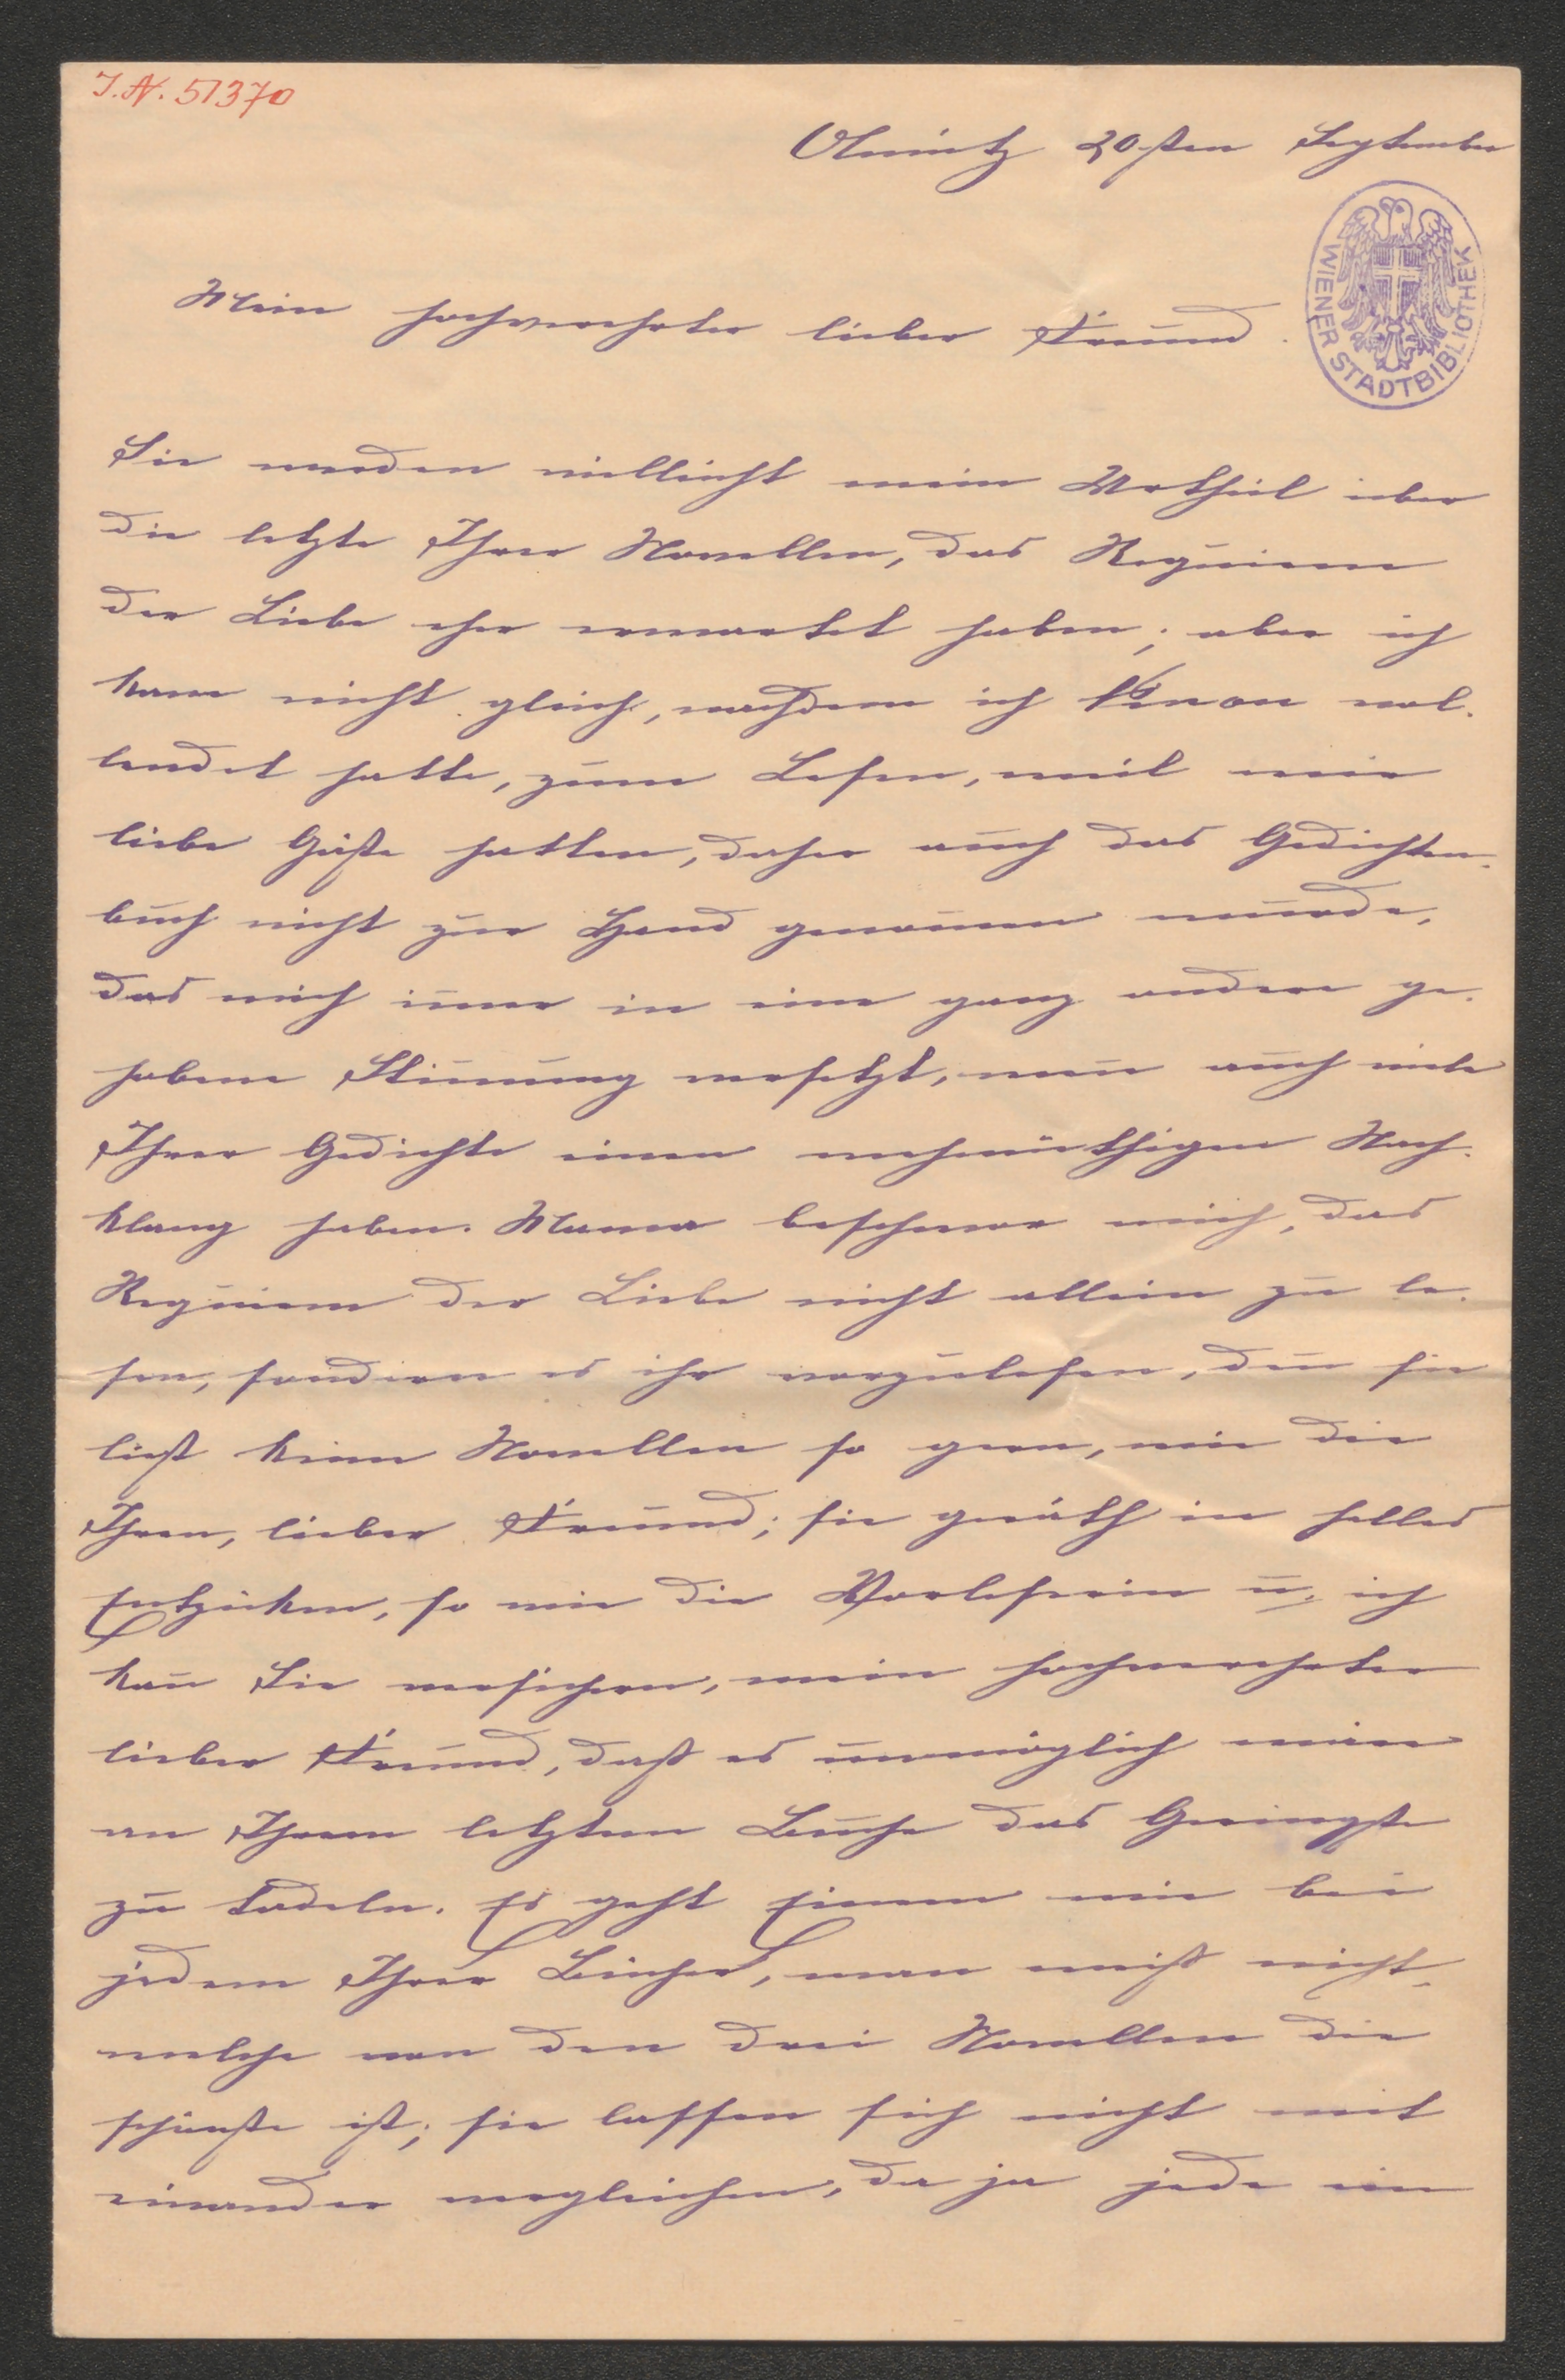 I.N. 51370
Olmütz 20sten September
WIENER STADTBIBLIOTHEK
Mein hochverehrter lieber Freund.
Sie werden vielleicht mein Urtheil über
die letzte Ihrer Novellen, das Requiem
der Liebe eher erwartet haben; aber ich
kam nicht gleich, nachdem ich Ninon vol-
lendet hatte, zum Lesen, weil wir
liebe Gäste hatten, daher auch das Gedichten-
buch nicht zur Hand genom̄en wurde,
das mich im̄er in eine ganz andere ge-
hobene Stim̄ung versetzt, wen̄ auch viele
Ihrer Gedichte einen wehmüthigen Nach-
klang haben. Mama beschwor mich, das
Requiem der Liebe nicht allein zu le-
sen, sondern es ihr vorzulesen, den̄ sie
liest keine Novellen so gern, wie die
Ihren, lieber Freund; sie geräth in helles
Entzücken, so wie die Vorleserin u. ich
kan̄ Sie versichern, mein hochverehrter
lieber Freund, daß es unmöglich wäre
an Ihrem letzten Buche das Geringste
zu tadeln. Es geht Einem wie bei
jedem Ihrer Bücher, man weiß nicht,
welche von den drei Novellen die
schönste ist; sie lassen sich nicht mit
einander vergleichen, da ja jede ein